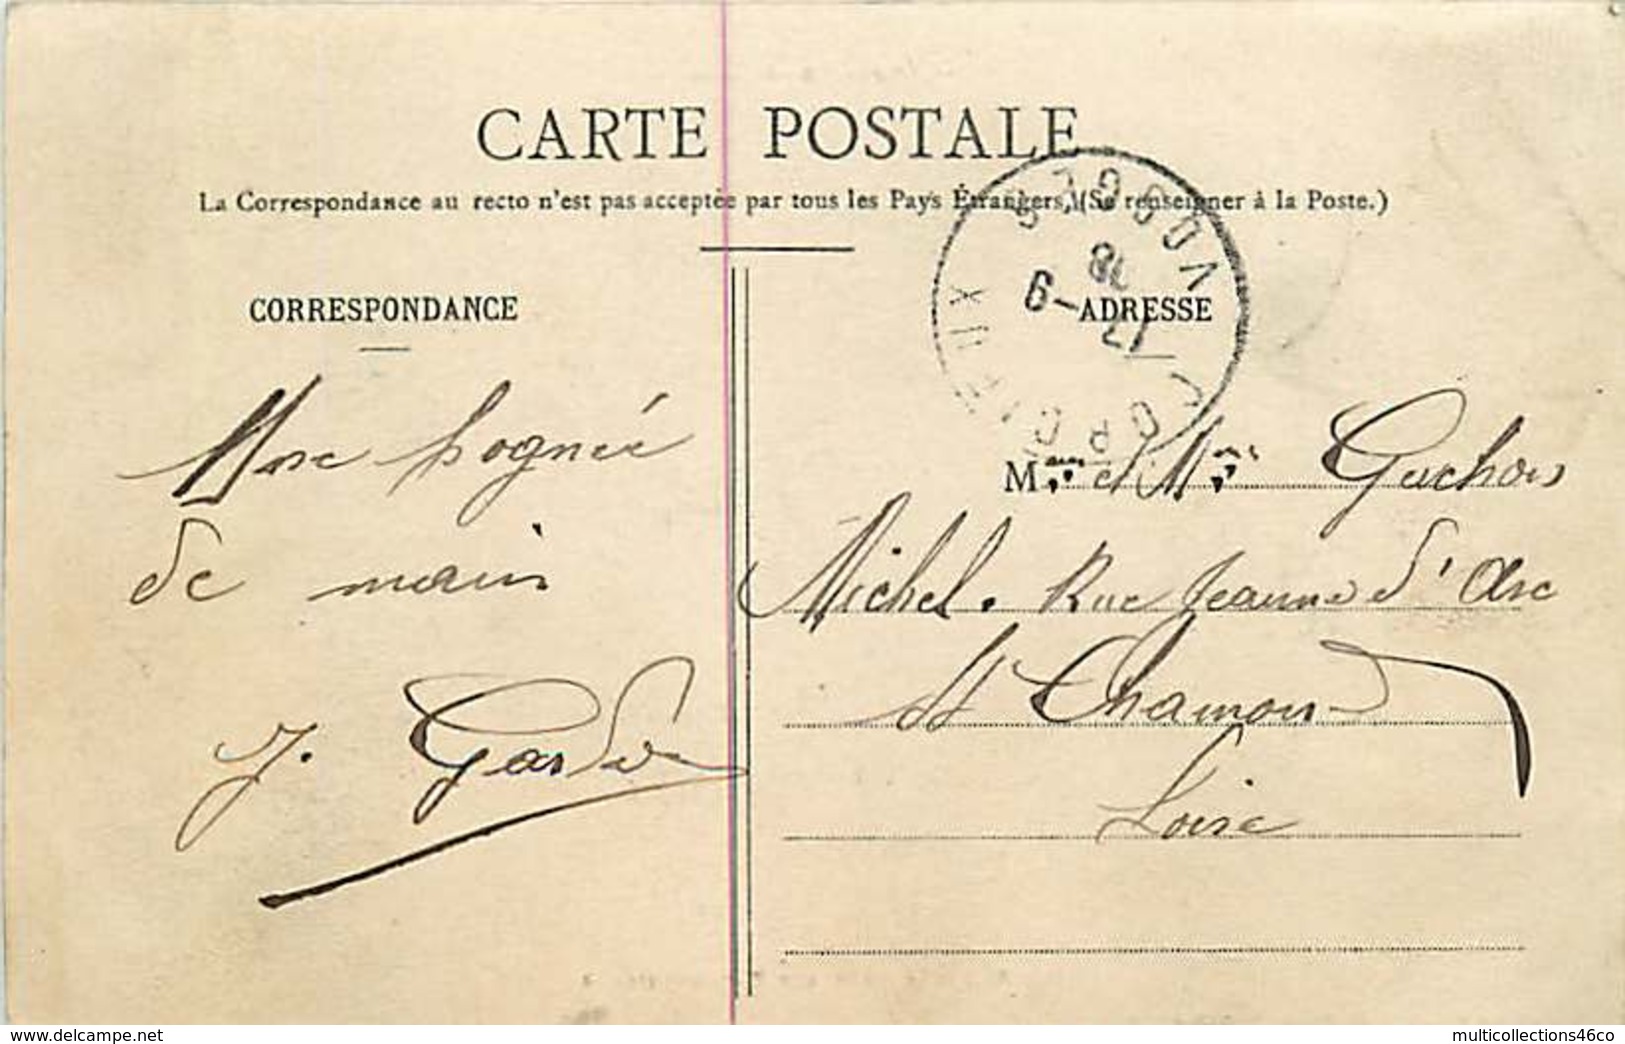 CARTE POSTALE
La Correspondance au recto n'est pas acceptée par tous les Pays Étrangers. (Se renseigner à la Poste.)
CORRESPONDANCE
Une pognée
de main
J. Gardo
ADRESSE
18
17-9
M
et
Guchon
Michel. Rue Jeanne d'Arc
St Chamond
Loire
https://www.delcampe.net
multicollections46co